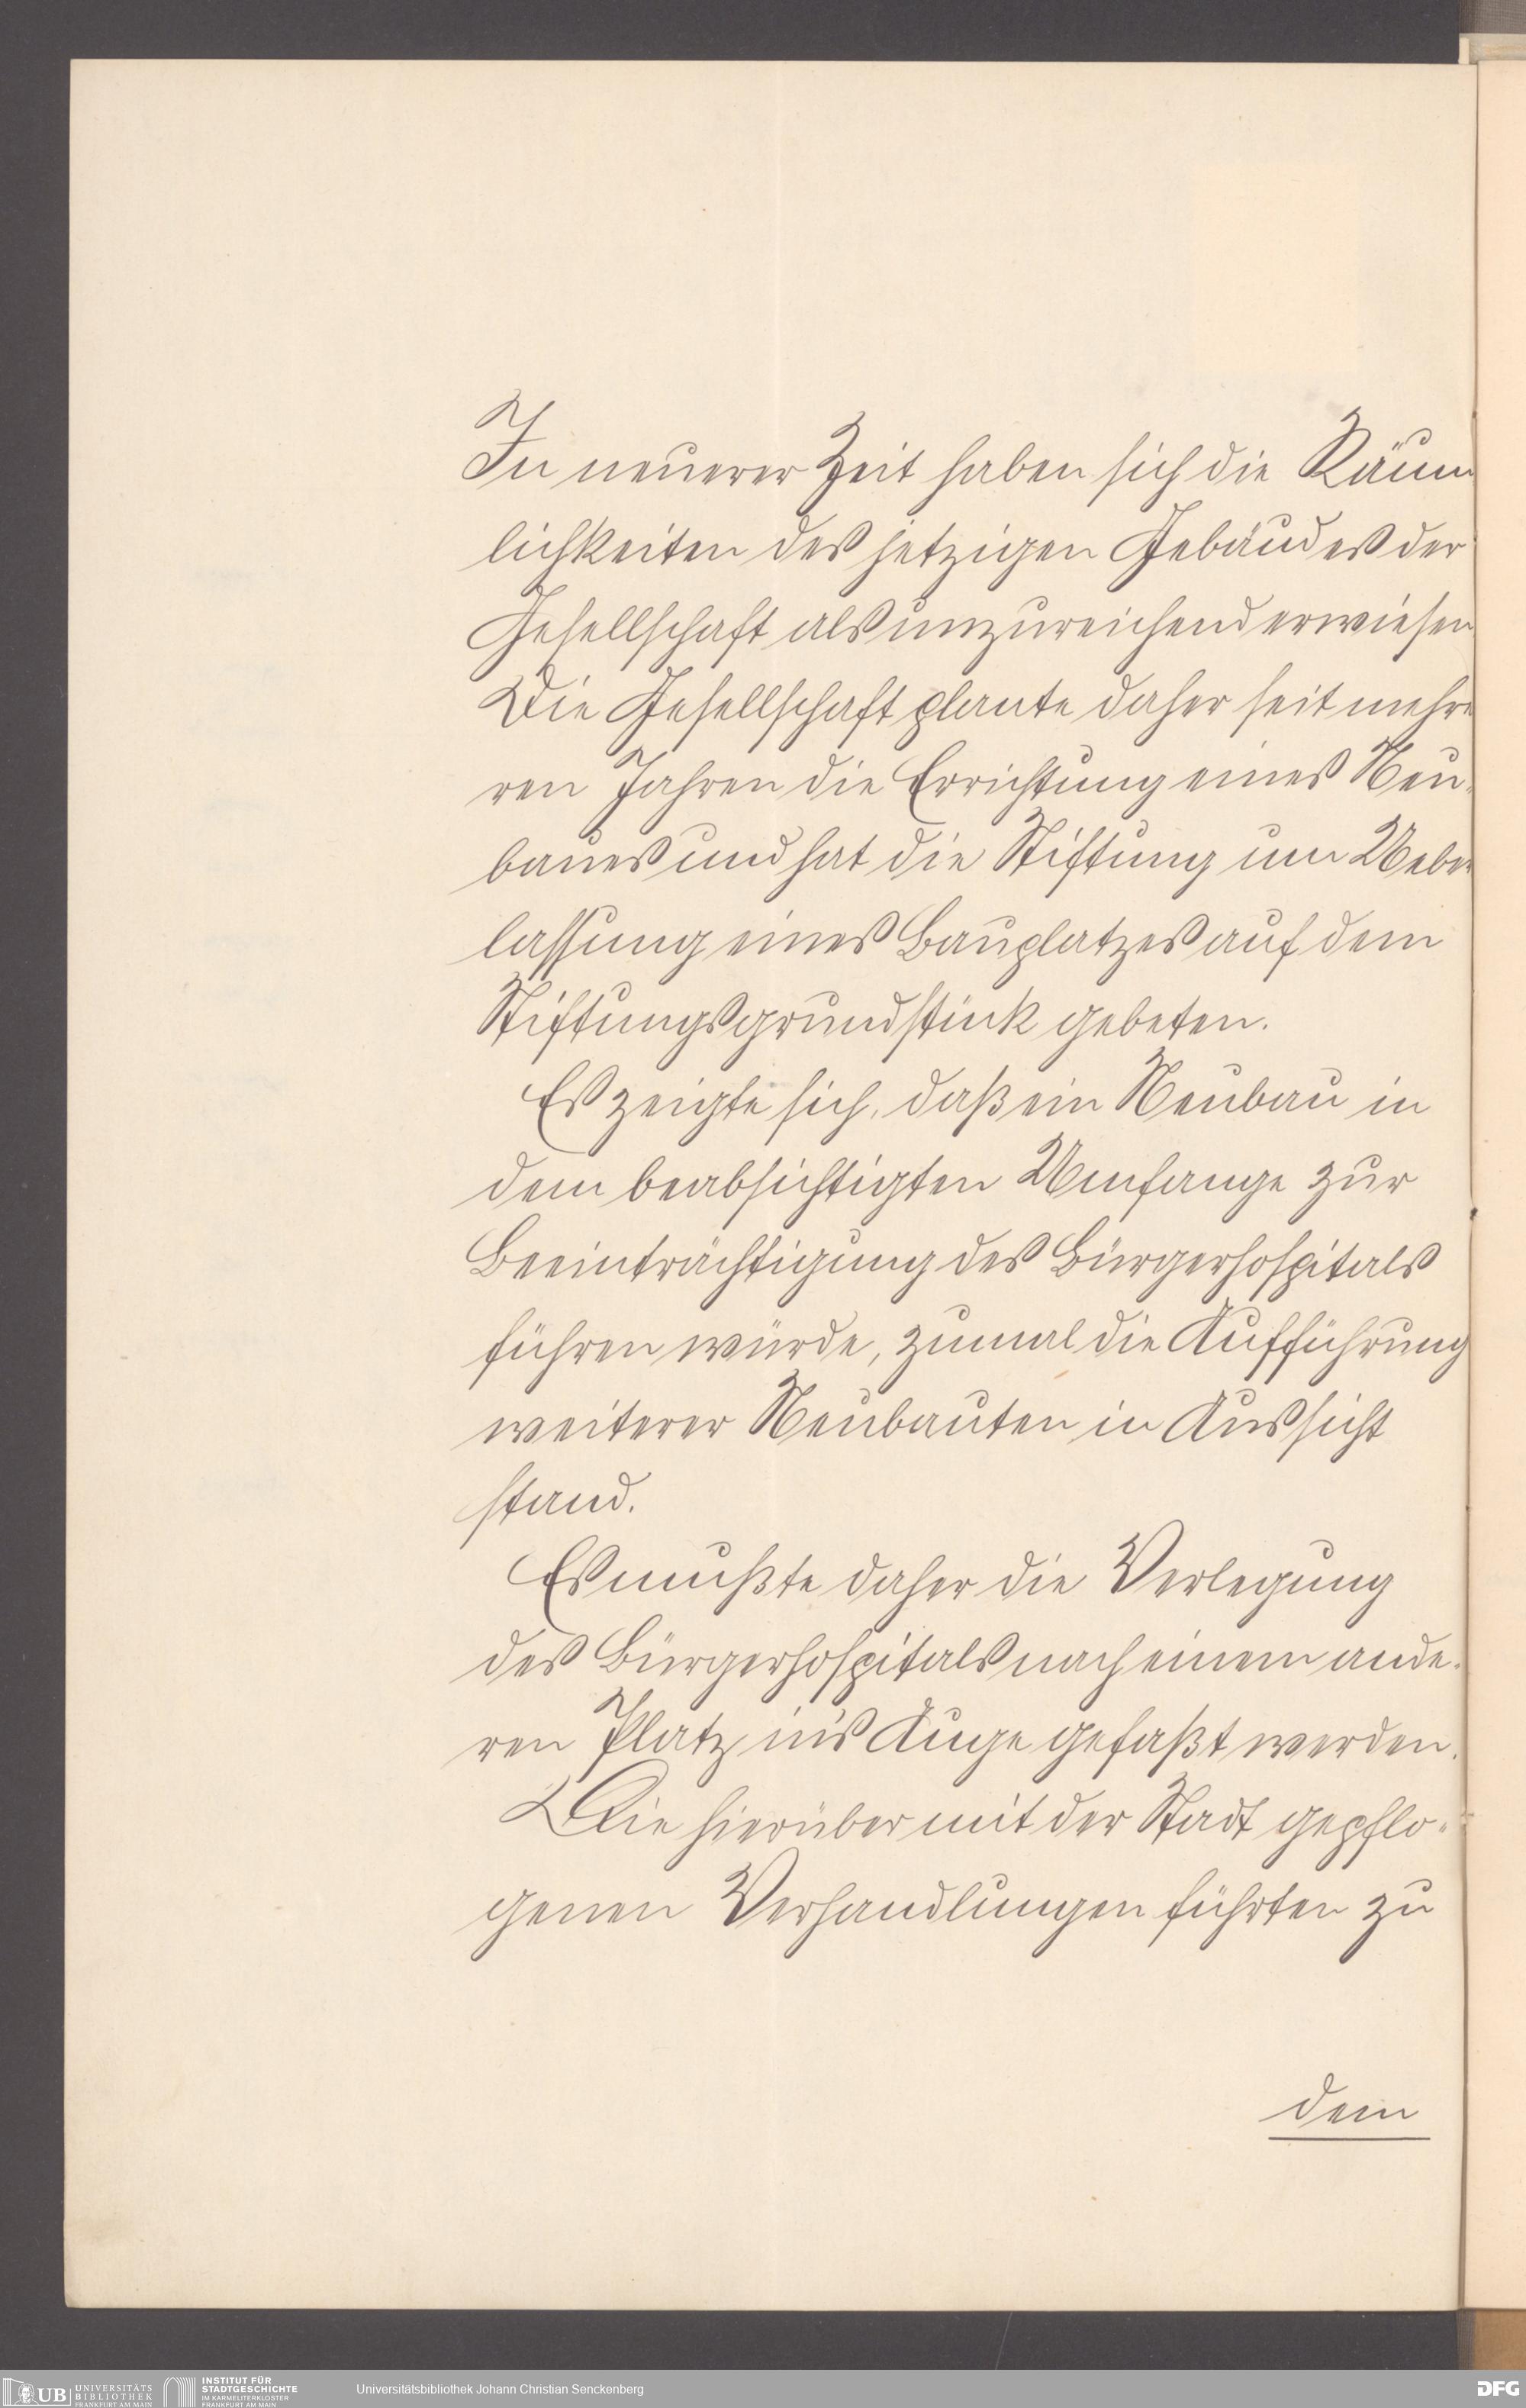 In neuerer Zeit haben sich die Räum
lichkeiten des jetzigen Gebäudes der
Gesellschaft als unzureichend erwiesen
Die Gesellschaft plante daher seit mehre
ren Jahren die Errichtung eines Neu-
baues und hat die Stiftung um Ueber
lassung eines Bauplatzes auf dem
Stiftungsgrundstück gebeten.
Es zeigte sich, daß ein Neubau in
dem beabsichtigten Umfange zur
Beeinträchtigung des Bürgerhospitals
führen würde, zumal die Aufführung
weiterer Neubauten in Aussicht
stand.
Es mußte daher die Verlegung
des Bürgerhospitals nach einem ande-
ren Platz in's Auge gefaßt werden.
Die hierüber mit der Stadt gepflo-
genen Verhandlungen führten zu
dem
UB UNIVERSITÄTS
BIBLIOTHEK
FRANKFURT AM MAIN
INSTITUT FÜR
STADTGESCHICHTE
IM KARMELITERKLOSTER
FRANKFURT AM MAIN
Universitätsbibliothek Johann Christian Senckenberg
DFG